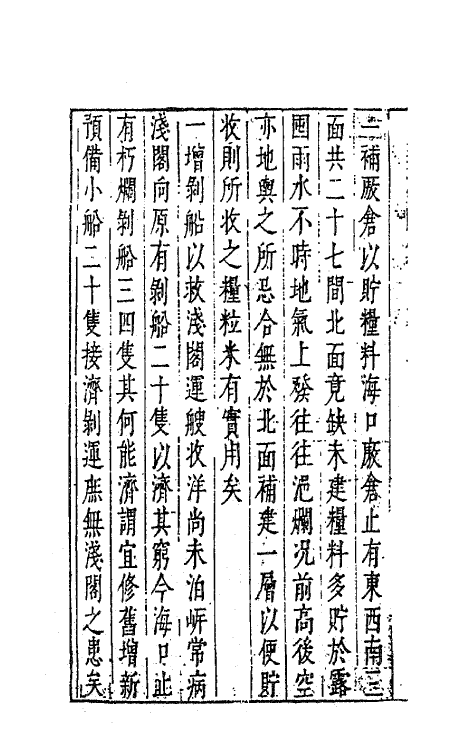 一補廒倉以貯糧料海口廒倉止有東西南三
面共二十七間北面竟缺未建糧料多貯於露
囤雨水不時地氣上發往往浥爛况前高後空
亦地輿之所忌合無於北面補建一層以便貯
收則所收之糧粒米有實用矣
一增剝船以救淺閣運艘收洋尚未泊㟁常病
淺閣向原有剝船二十隻以濟其窮今海口止
有朽爛剝船三四隻其何能濟謂宜修舊增新
預備小船二十隻接濟剝運庶無淺閣之患矣